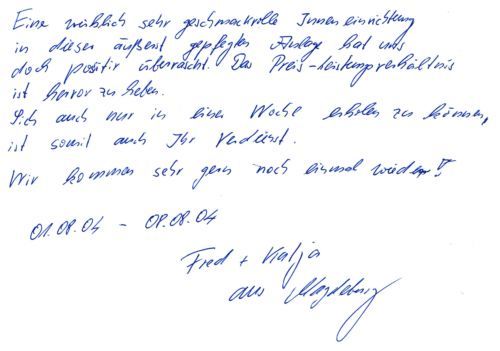 Eine wirklich sehr geschmackvolle Inneneinrichtung
in dieser äußerst gepflegten Anlage hat uns
doch positiv überrascht. Das Preis-Leistungsverhältnis
ist hervor zu heben.
Sich auch nur in einer Woche erholen zu können,
ist somit auch Ihr Verdienst.
Wir kommen sehr gern noch einmal wieder!
01.08.04 - 08.08.04
Fred + Katja
aus Magdeburg